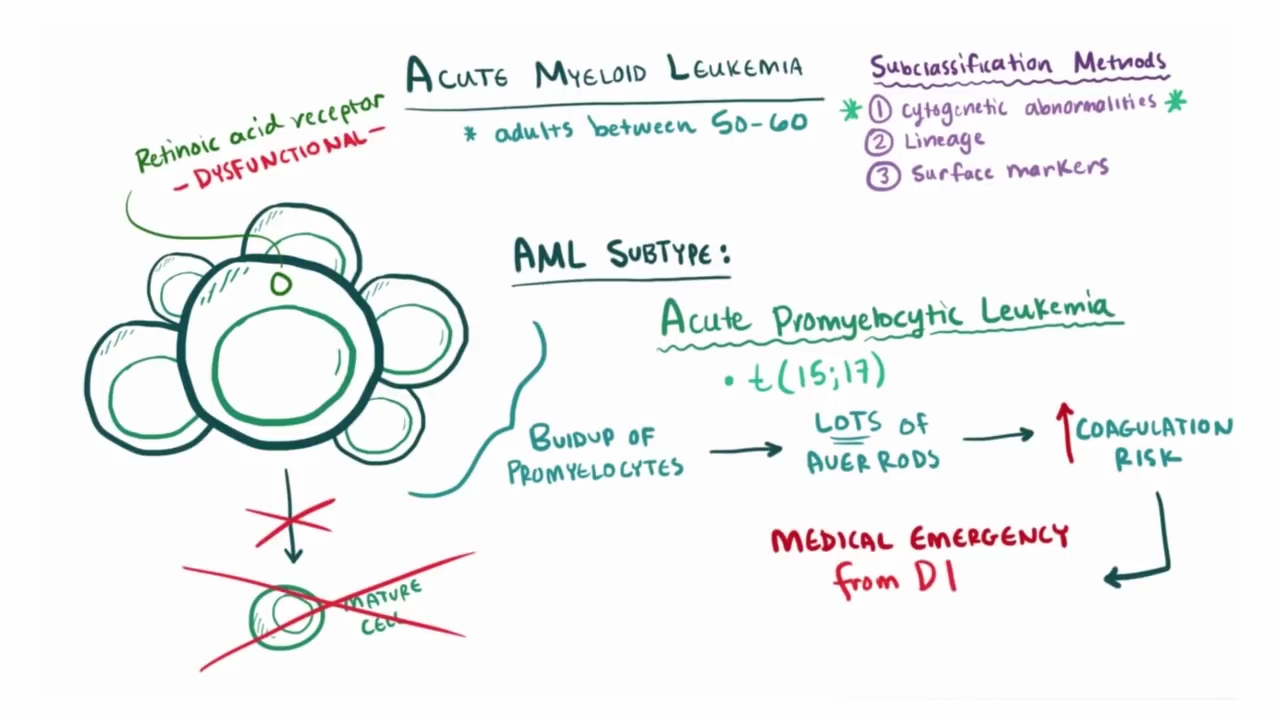 ACUTE MYELOID LEUKEMIA
* adults between 50-60
Subclassification Methods
* ① cytogenetic abnormalities *
② Lineage
③ Surface markers
Retinoic acid receptor
- DYSFUNCTIONAL -
AML SUBTYPE:
Acute Promyelocytic Leukemia
• t(15;17)
BUIDUP OF
PROMYELOCYTES
LOTS OF
AUER RODS
↑ COAGULATION
RISK
MEDICAL EMERGENCY
from DI
MATURE
CELL